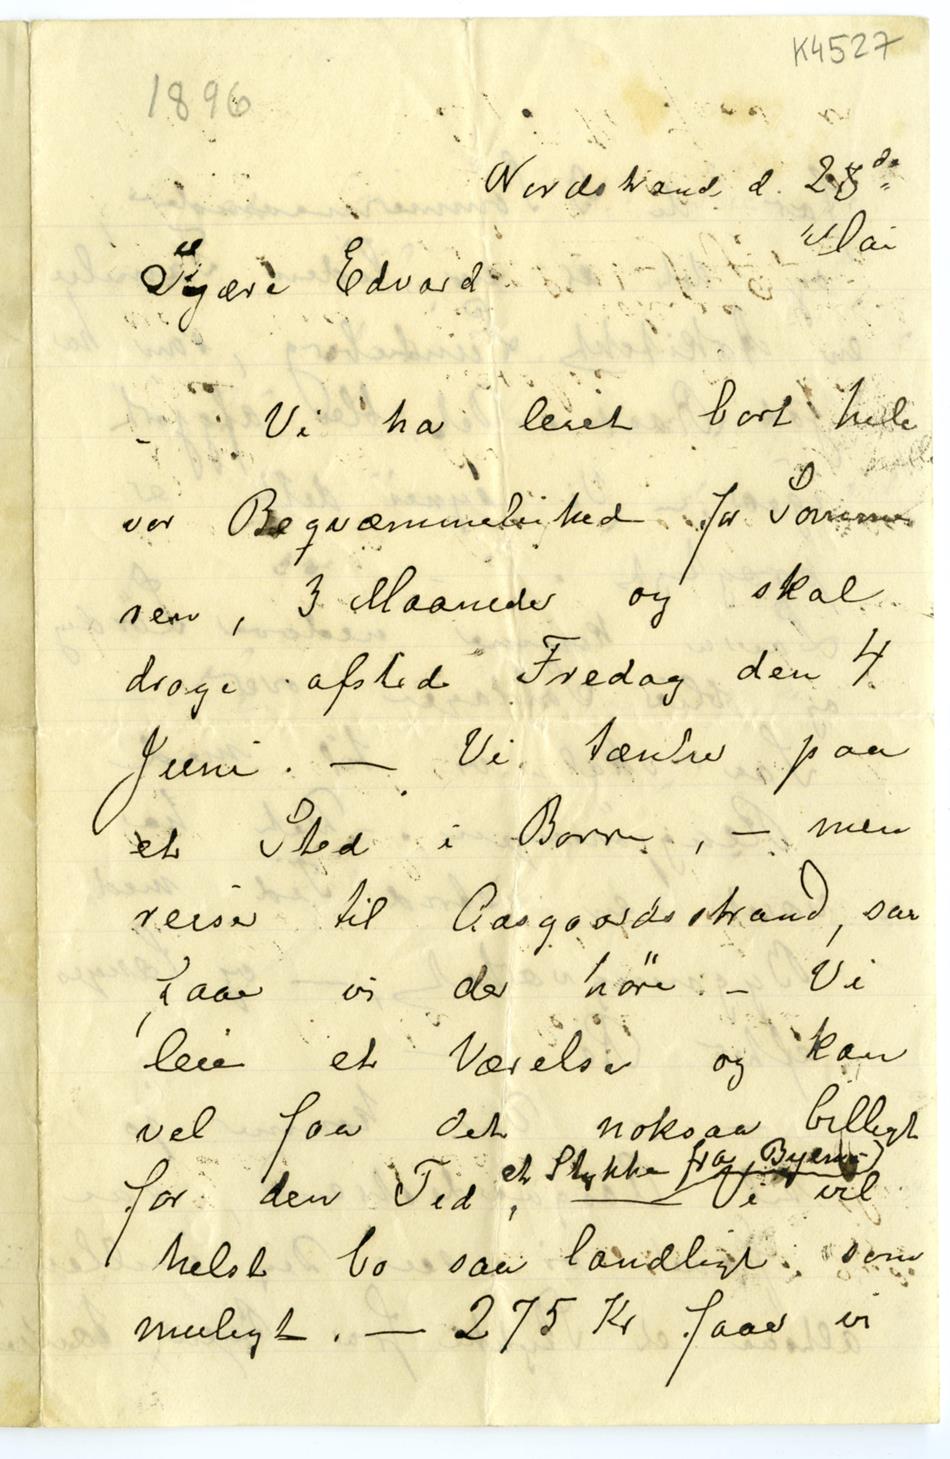 K4527
1896
Nordstrand d. 28de
Mai
Kjære Edvard
- Vi ha leiet bort hele
vor Beqvæmmelished for Somme
ren, 3 Maaneder og skal
drage afsted Fredag den 4
Juni. — Vi tænker paa
et Sted i Borre, — men
reiser til Aasgaardsstrand, saa
faar vi der höre. — Vi
leie et Værelse og kan
vel faa det noksaa billigt
et Stykke fra Byerne)
for den Tid, — Vi vil
helst bo saa landligt som
muligt. — 275 Kr faar vi